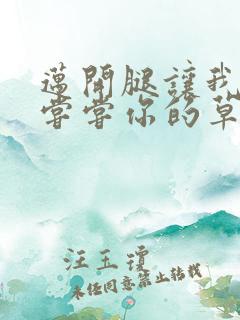 邁開腿讓我
嘗嘗你的草
汪玉瓊
未经同意禁止转载